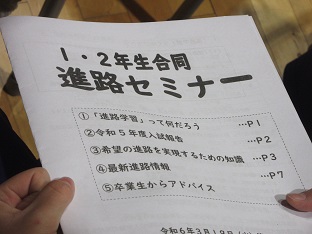 1・2年生合同
進路セミナー
①「進路学習」って何だろう …P1
②令和5年度入試報告 …P2
③希望の進路を実現するための知識 …P3
④最新進路情報 …P7
⑤卒業生からアドバイス
令和6年3月19日